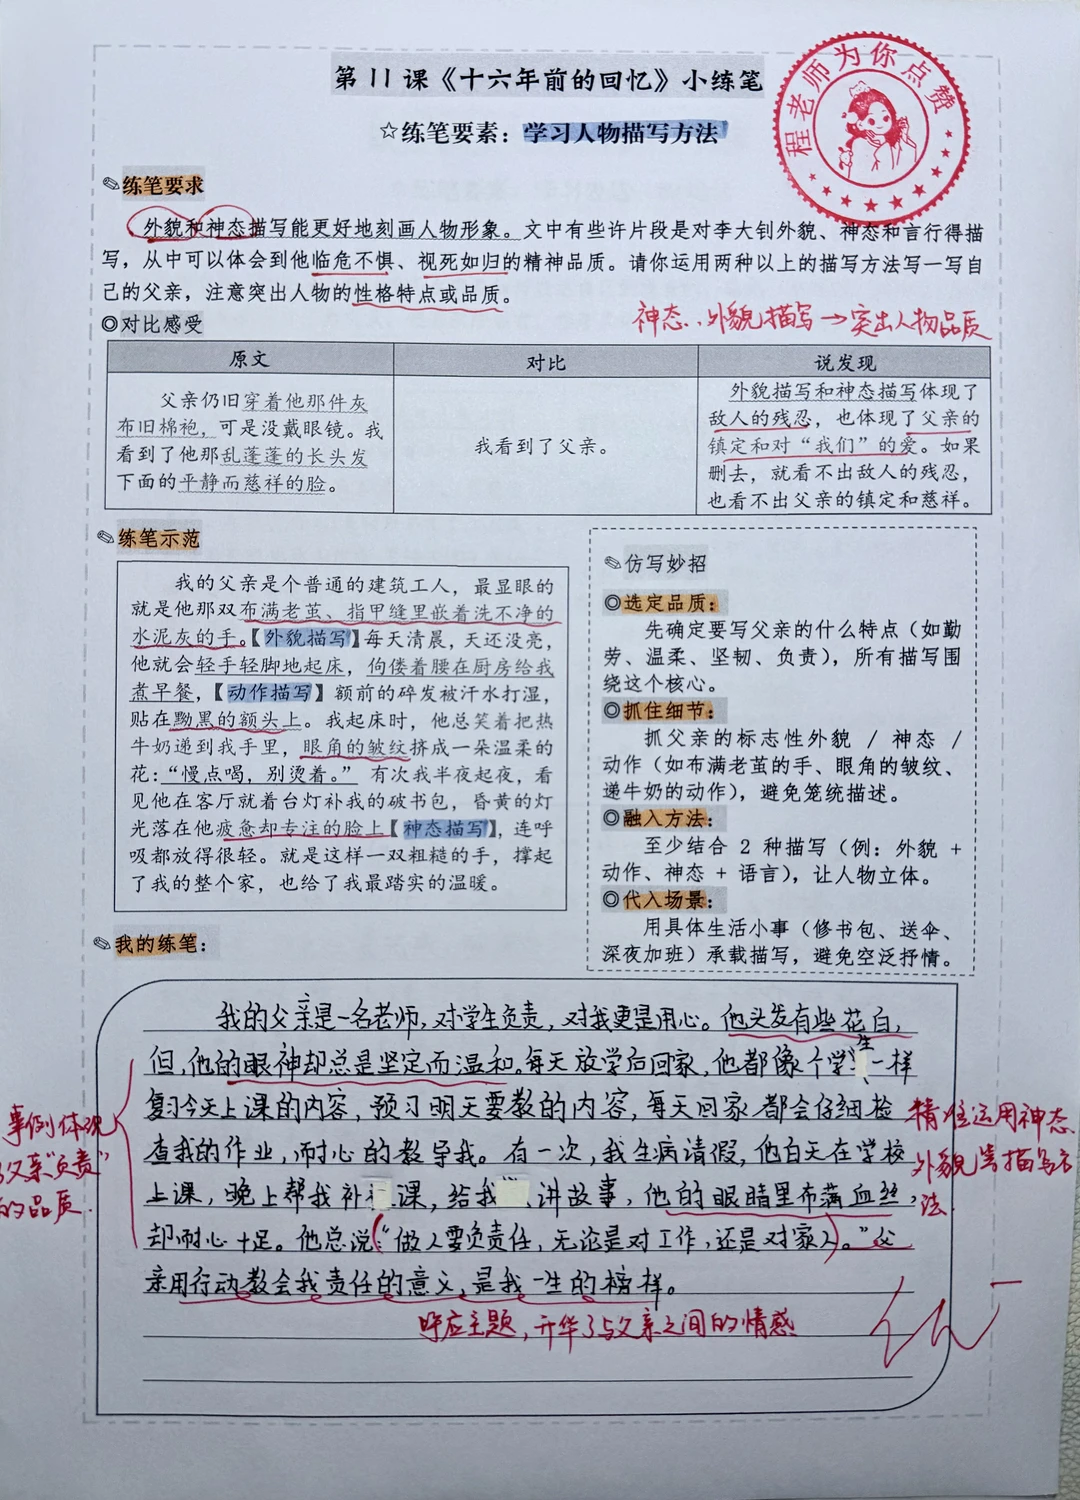 第11课《十六年前的回忆》小练笔
程老师为你点赞
☆练笔要素：学习人物描写方法
练笔要求
外貌和神态描写能更好地刻画人物形象。文中有些许片段是对李大钊外貌、神态和言行得描
写，从中可以体会到他临危不惧、视死如归的精神品质。请你运用两种以上的描写方法写一写自
己的父亲，注意突出人物的性格特点或品质。
神态、外貌描写→突出人物品质
◎对比感受
原文
父亲仍旧穿着他那件灰
布旧棉袍，可是没戴眼镜。我
看到了他那乱蓬蓬的长头发
下面的平静而慈祥的脸。
对比
我看到了父亲。
说发现
外貌描写和神态描写体现了
敌人的残忍，也体现了父亲的
镇定和对“我们”的爱。如果
删去，就看不出敌人的残忍，
也看不出父亲的镇定和慈祥。
练笔示范
我的父亲是个普通的建筑工人，最显眼的
就是他那双布满老茧、指甲缝里嵌着洗不净的
水泥灰的手。【外貌描写】每天清晨，天还没亮，
他就会轻手轻脚地起床，佝偻着腰在厨房给我
煮早餐，【动作描写】额前的碎发被汗水打湿，
贴在黝黑的额头上。我起床时，他总笑着把热
牛奶递到我手里，眼角的皱纹挤成一朵温柔的
花：“慢点喝，别烫着。” 有次我半夜起夜，看
见他在客厅就着台灯补我的破书包，昏黄的灯
光落在他疲惫却专注的脸上【神态描写】，连呼
吸都放得很轻。就是这样一双粗糙的手，撑起
了我的整个家，也给了我最踏实的温暖。
仿写妙招
◎选定品质：
先确定要写父亲的什么特点（如勤
劳、温柔、坚韧、负责），所有描写围
绕这个核心。
◎抓住细节：
抓父亲的标志性外貌 / 神态 /
动作（如布满老茧的手、眼角的皱纹、
递牛奶的动作），避免笼统描述。
◎融入方法：
至少结合 2 种描写（例：外貌 +
动作、神态 + 语言），让人物立体。
◎代入场景：
用具体生活小事（修书包、送伞、
深夜加班）承载描写，避免空泛抒情。
我的练笔：
我的父亲是一名老师，对学生负责，对我更是用心。他头发有些花白，
但，他的眼神却总是坚定而温和。每天放学后回家，他都像个学生一样
复习今天上课的内容，预习明天要教的内容，每天回家都会仔细检
查我的作业，耐心的教导我。有一次，我生病请假，他白天在学校
上课，晚上帮我补课，给我讲故事，他的眼睛里布满血丝，
却耐心十足。他总说“做人要负责任，无论是对工作，还是对家人。”父
亲用行动教会我责任的意义，是我一生的榜样。
事例体现
父亲“负责”
的品质.
精准运用神态
外貌等描写方
法.
呼应主题，升华了与父亲之间的情感